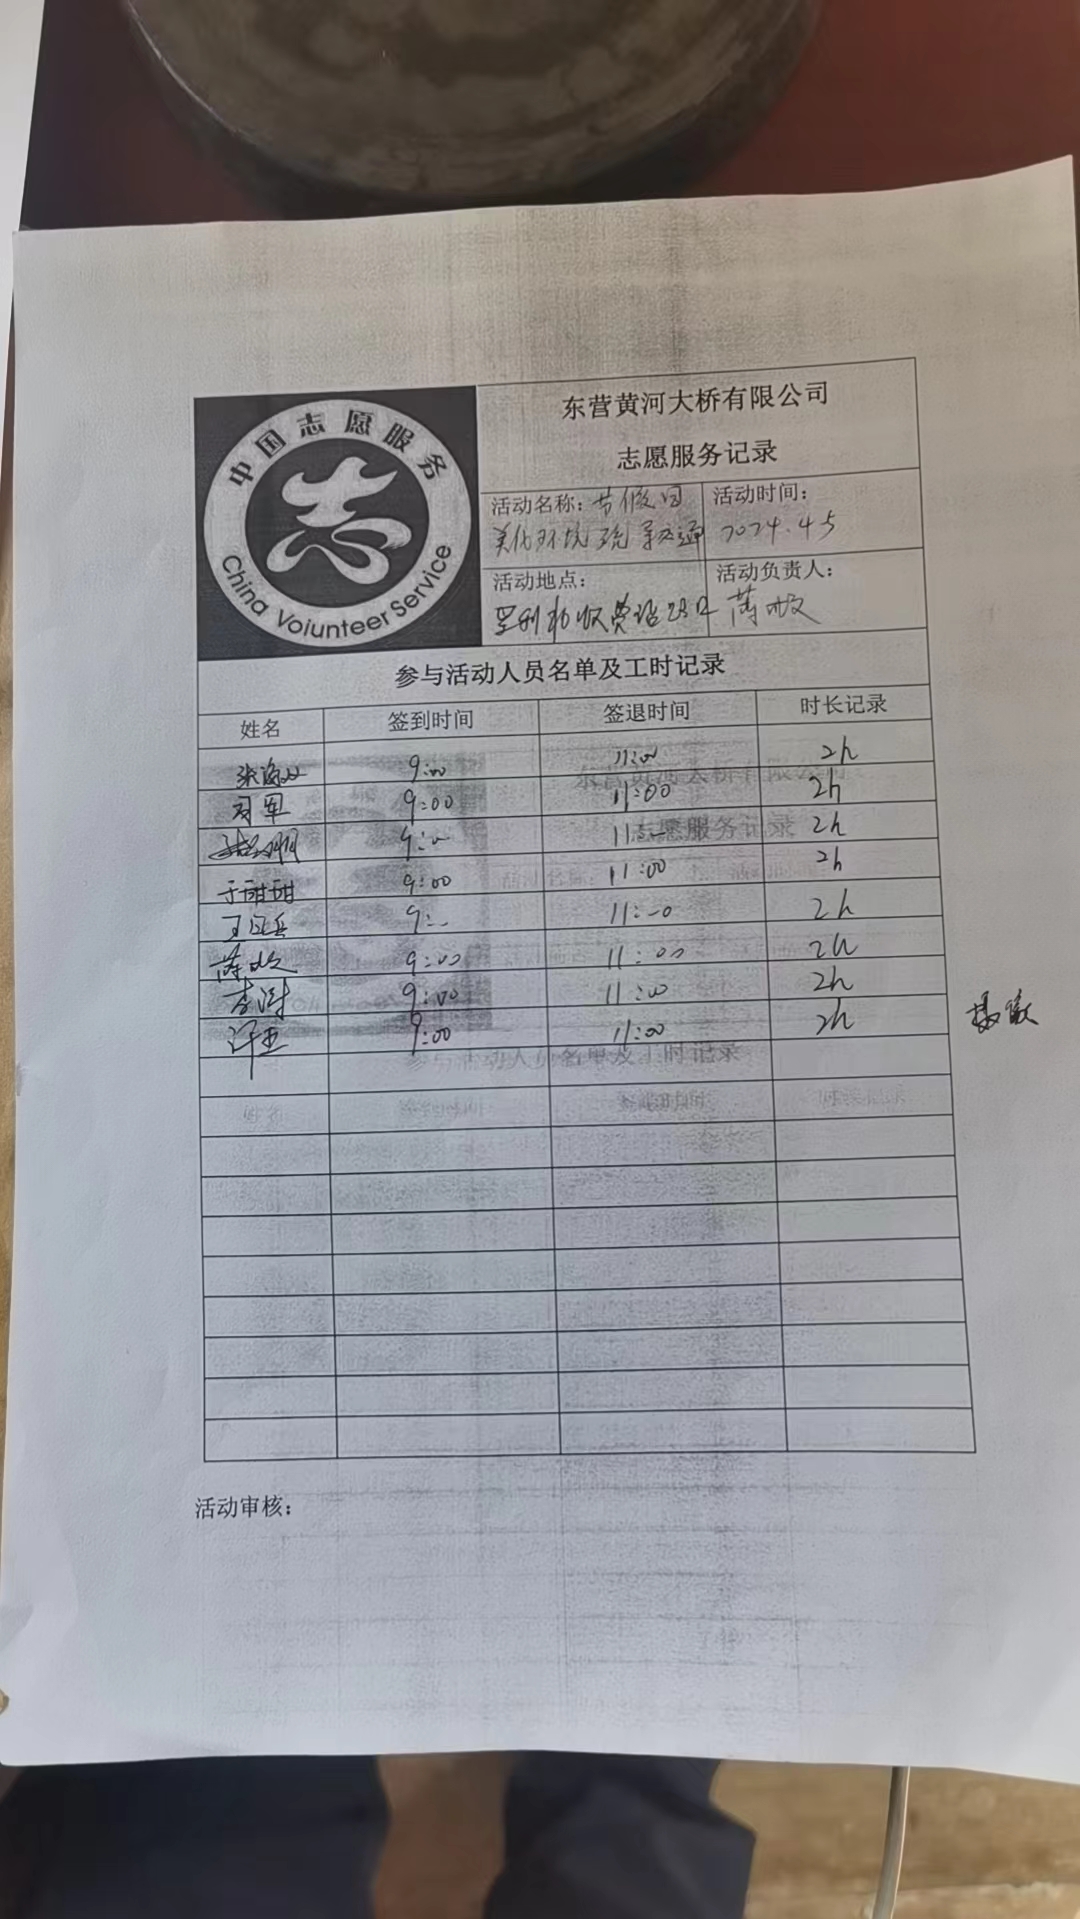 中国志愿服务
China Voiunteer Service
东营黄河大桥有限公司
志愿服务记录
活动名称：节假日
美化环境 疏导交通
活动时间：
2024.4.5
活动地点：
收费站
活动负责人：
蒋敏
参与活动人员名单及工时记录
姓名 签到时间 签退时间 时长记录
张海 9:00 11:00 2h
军 9:00 11:00 2h
明 9: 11: 2h
于甜甜 9:00 11:00 2h
王 兵 9: 11: 2h
蒋敏 9:00 11:00 2h
李 9:00 11:00 2h
许亚 9:00 11:00 2h
活动审核：